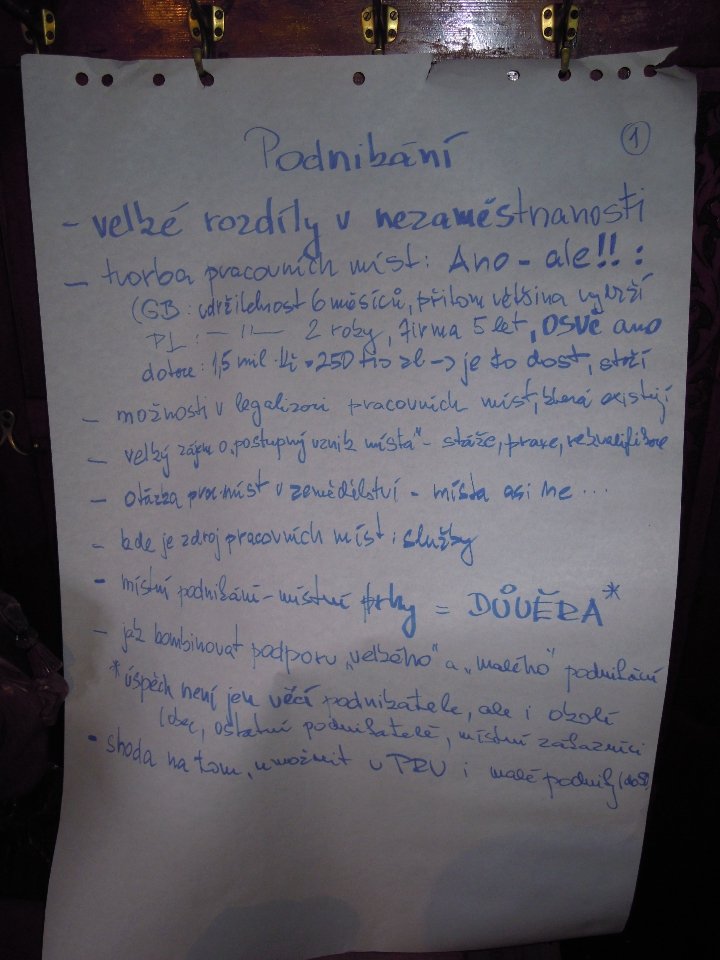 1
Podnikání
- velké rozdíly v nezaměstnanosti
- tvorba pracovních míst: Ano - ale!! :
(GB: udržitelnost 6 měsíců, přitom většina vydrží
PL: — " — 2 roky, firma 5 let, OSVČ ano
dotace: 1,5 mil. Kč = 250 tis zl -> je to dost, stačí
- možnosti v legalizaci pracovních míst, která existují
- velký zájem o "postupný vznik místa" - stáže, praxe, rekvalifikace
- otázka prac. míst v zemědělství - místa asi ne ...
- kde je zdroj pracovních míst: služby
- místní podnikání - místní trhy = DŮVĚRA*
- jak kombinovat podporu "velkého" a "malého" podnikání
* úspěch není jen věcí podnikatele, ale i okolí
(obec, ostatní podnikatelé, místní zákazníci
- shoda na tom, umožnit v PRV i malé podniky